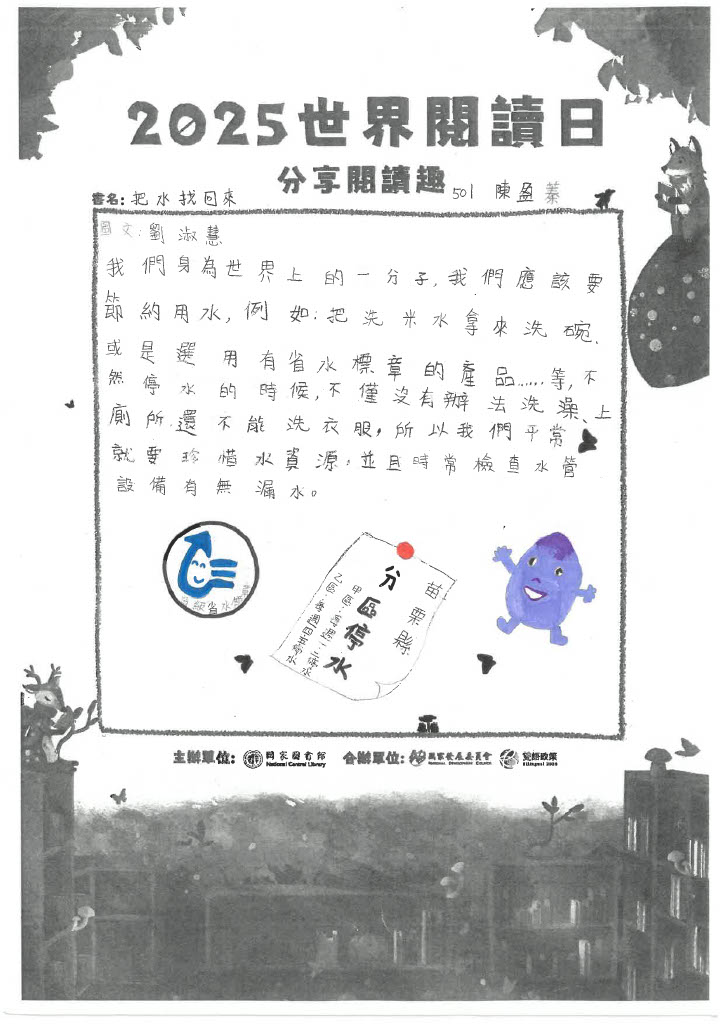 2025世界閱讀日
分享閱讀趣
書名: 把水找回來
501 陳盈蓁
圖文:劉淑慧
我們身為世界上的一分子,我們應該要
節約用水,例如:把洗米水拿來洗碗、
或是選用有省水標章的產品……等,不
然停水的時候,不僅沒有辦法洗澡、上
廁所.還不能洗衣服,所以我們平常
就要珍惜水資源,並且時常檢查水管
設備有無漏水。
省水標章
苗栗縣
分區停水
甲區:每週一二停水
乙區:每週四五停水
主辦單位: 國家圖書館 National Central Library
合辦單位: 國家發展委員會 NATIONAL DEVELOPMENT COUNCIL 雙語政策 Bilingual 2030